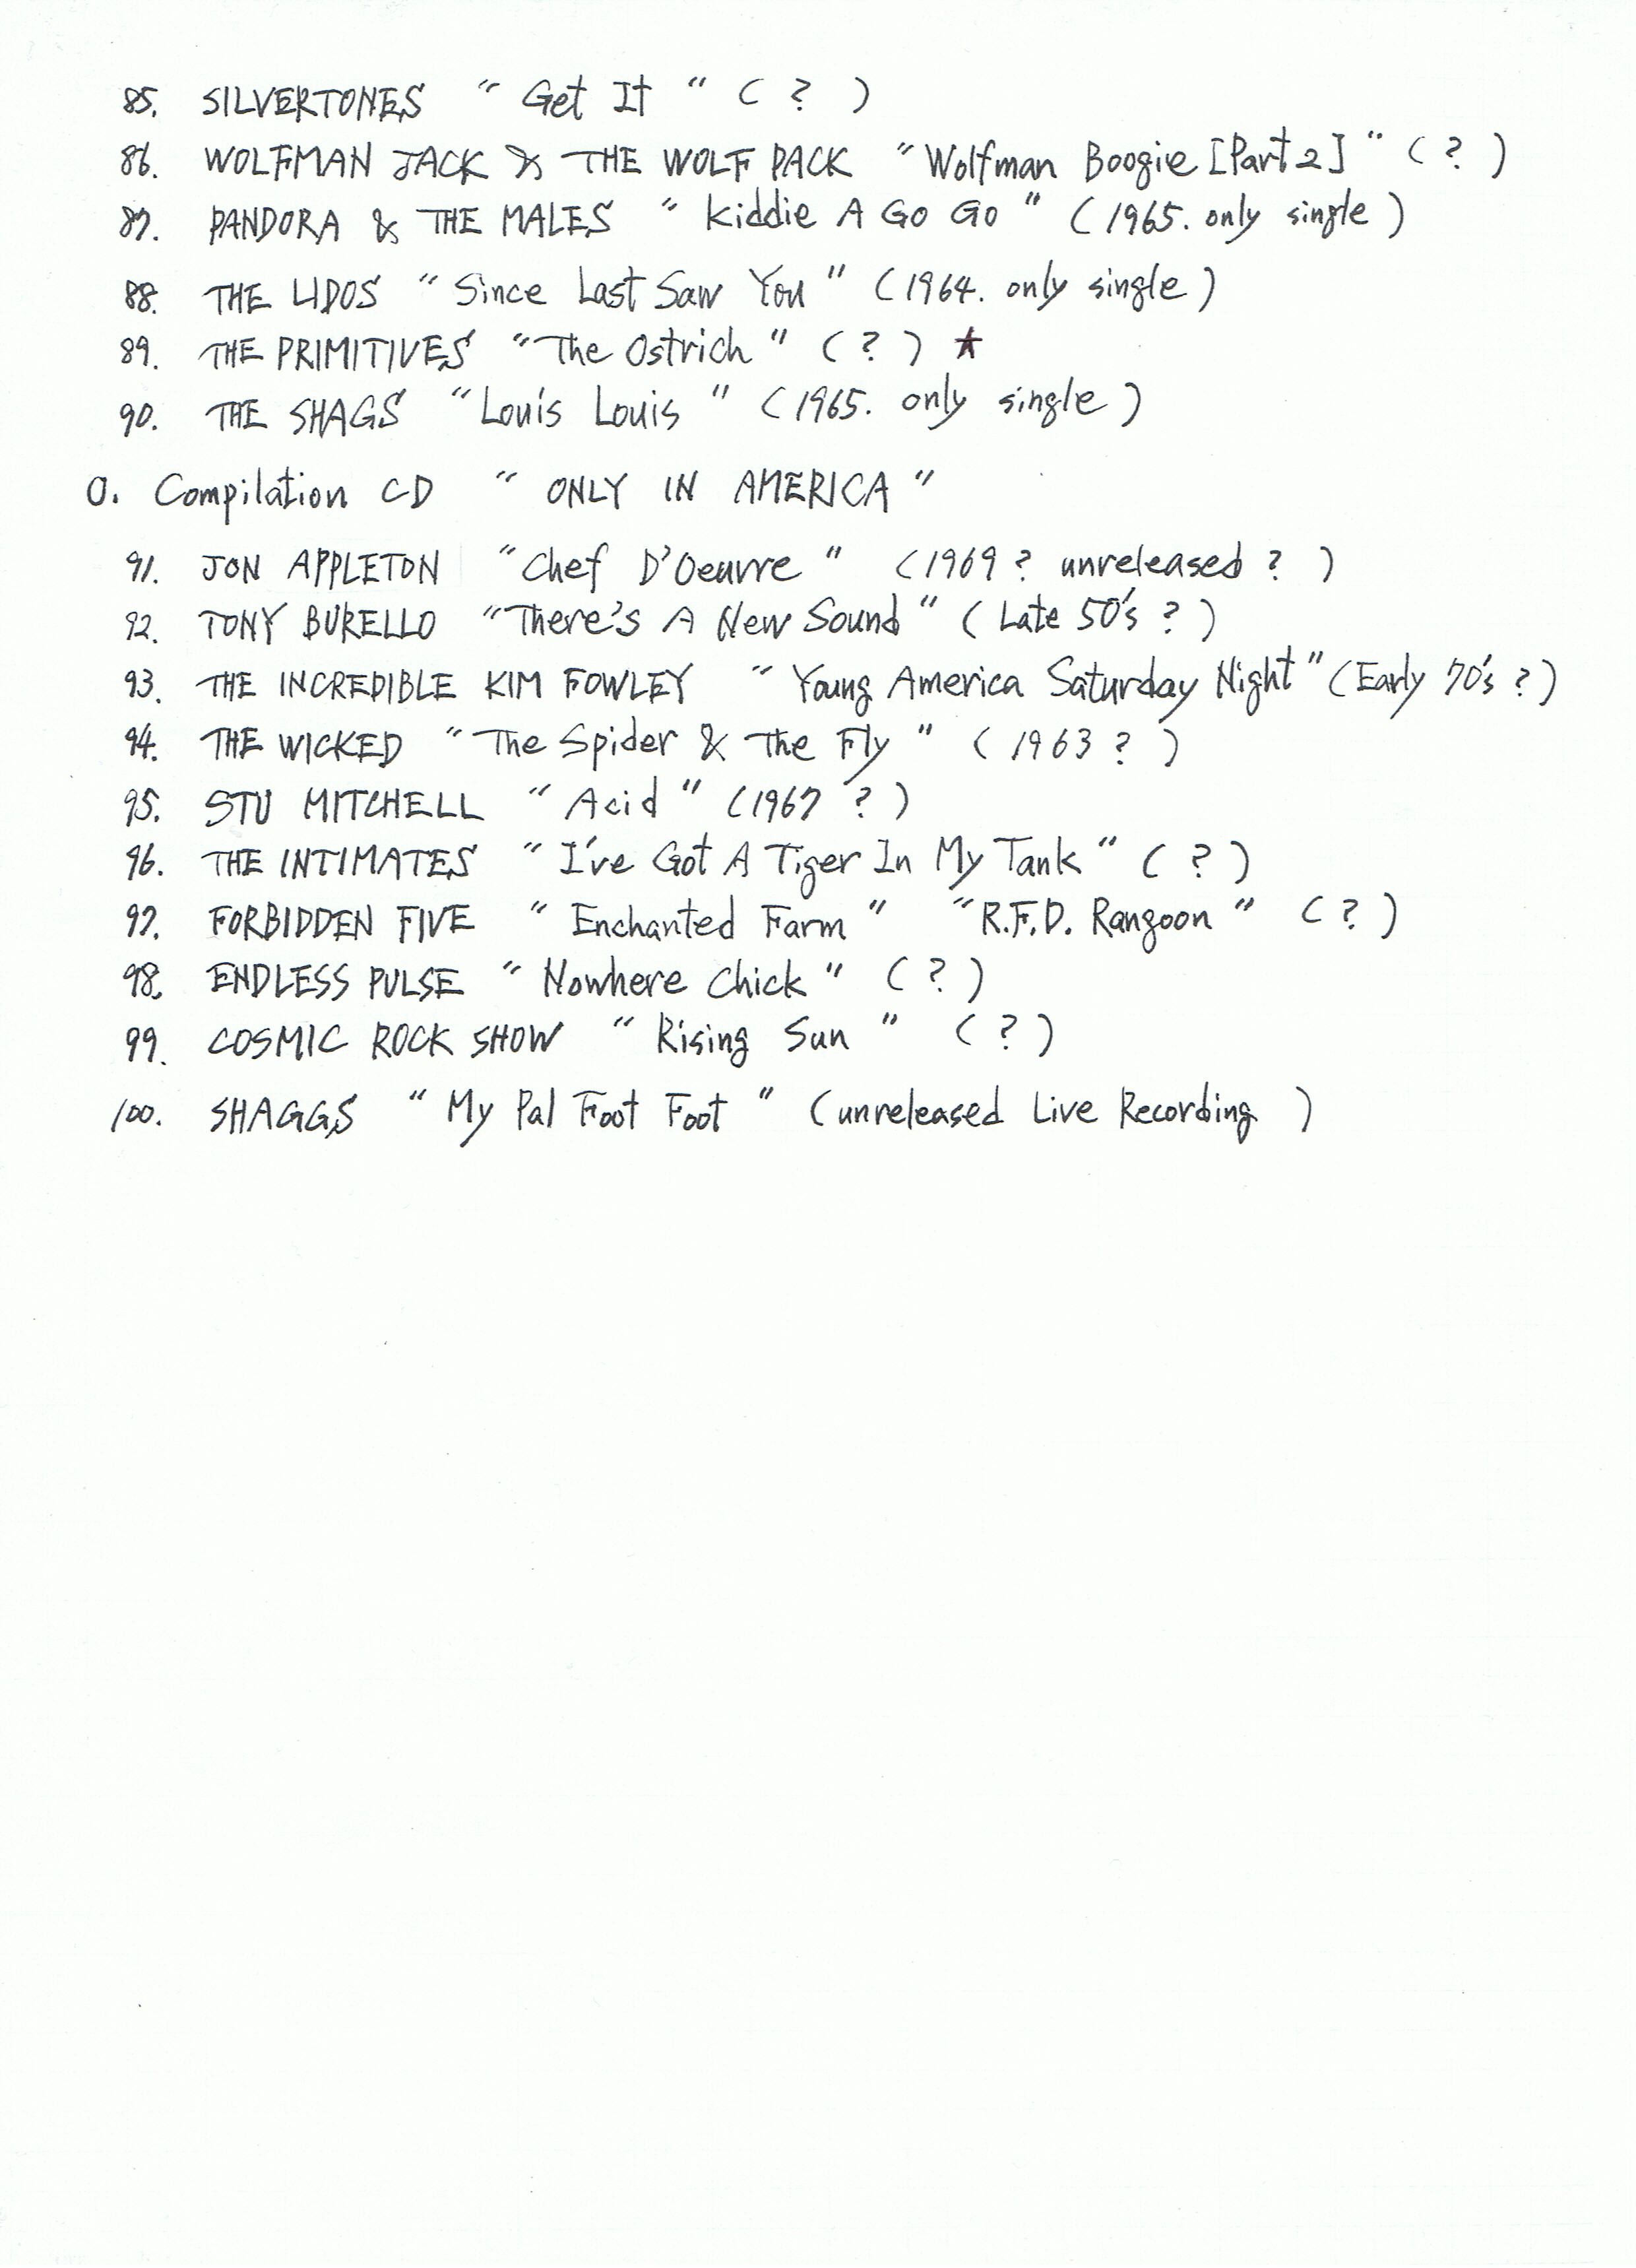 85. SILVERTONES " Get It " ( ? )
86. WOLFMAN JACK & THE WOLF PACK "Wolfman Boogie [Part 2] " ( ? )
87. PANDORA & THE MALES " Kiddie A Go Go " (1965. only single )
88. THE LIDOS "Since Last Saw You " (1964. only single )
89. THE PRIMITIVES "The Ostrich " ( ? ) ★
90. THE SHAGS "Louis Louis " (1965. only single )
O. Compilation CD " ONLY IN AMERICA "
91. JON APPLETON "Chef D'Oeuvre " (1969 ? unreleased ? )
92. TONY BURELLO "There's A New Sound " ( Late 50's ? )
93. THE INCREDIBLE KIM FOWLEY " Young America Saturday Night " (Early 70's ? )
94. THE WICKED "The Spider & The Fly " ( 1963 ? )
95. STU MITCHELL " Acid " (1967 ? )
96. THE INTIMATES " I've Got A Tiger In My Tank " ( ? )
97. FORBIDDEN FIVE " Enchanted Farm " "R.F.D. Rangoon " ( ? )
98. ENDLESS PULSE " Nowhere Chick " ( ? )
99. COSMIC ROCK SHOW " Rising Sun " ( ? )
100. SHAGGS " My Pal Foot Foot " (unreleased Live Recording )